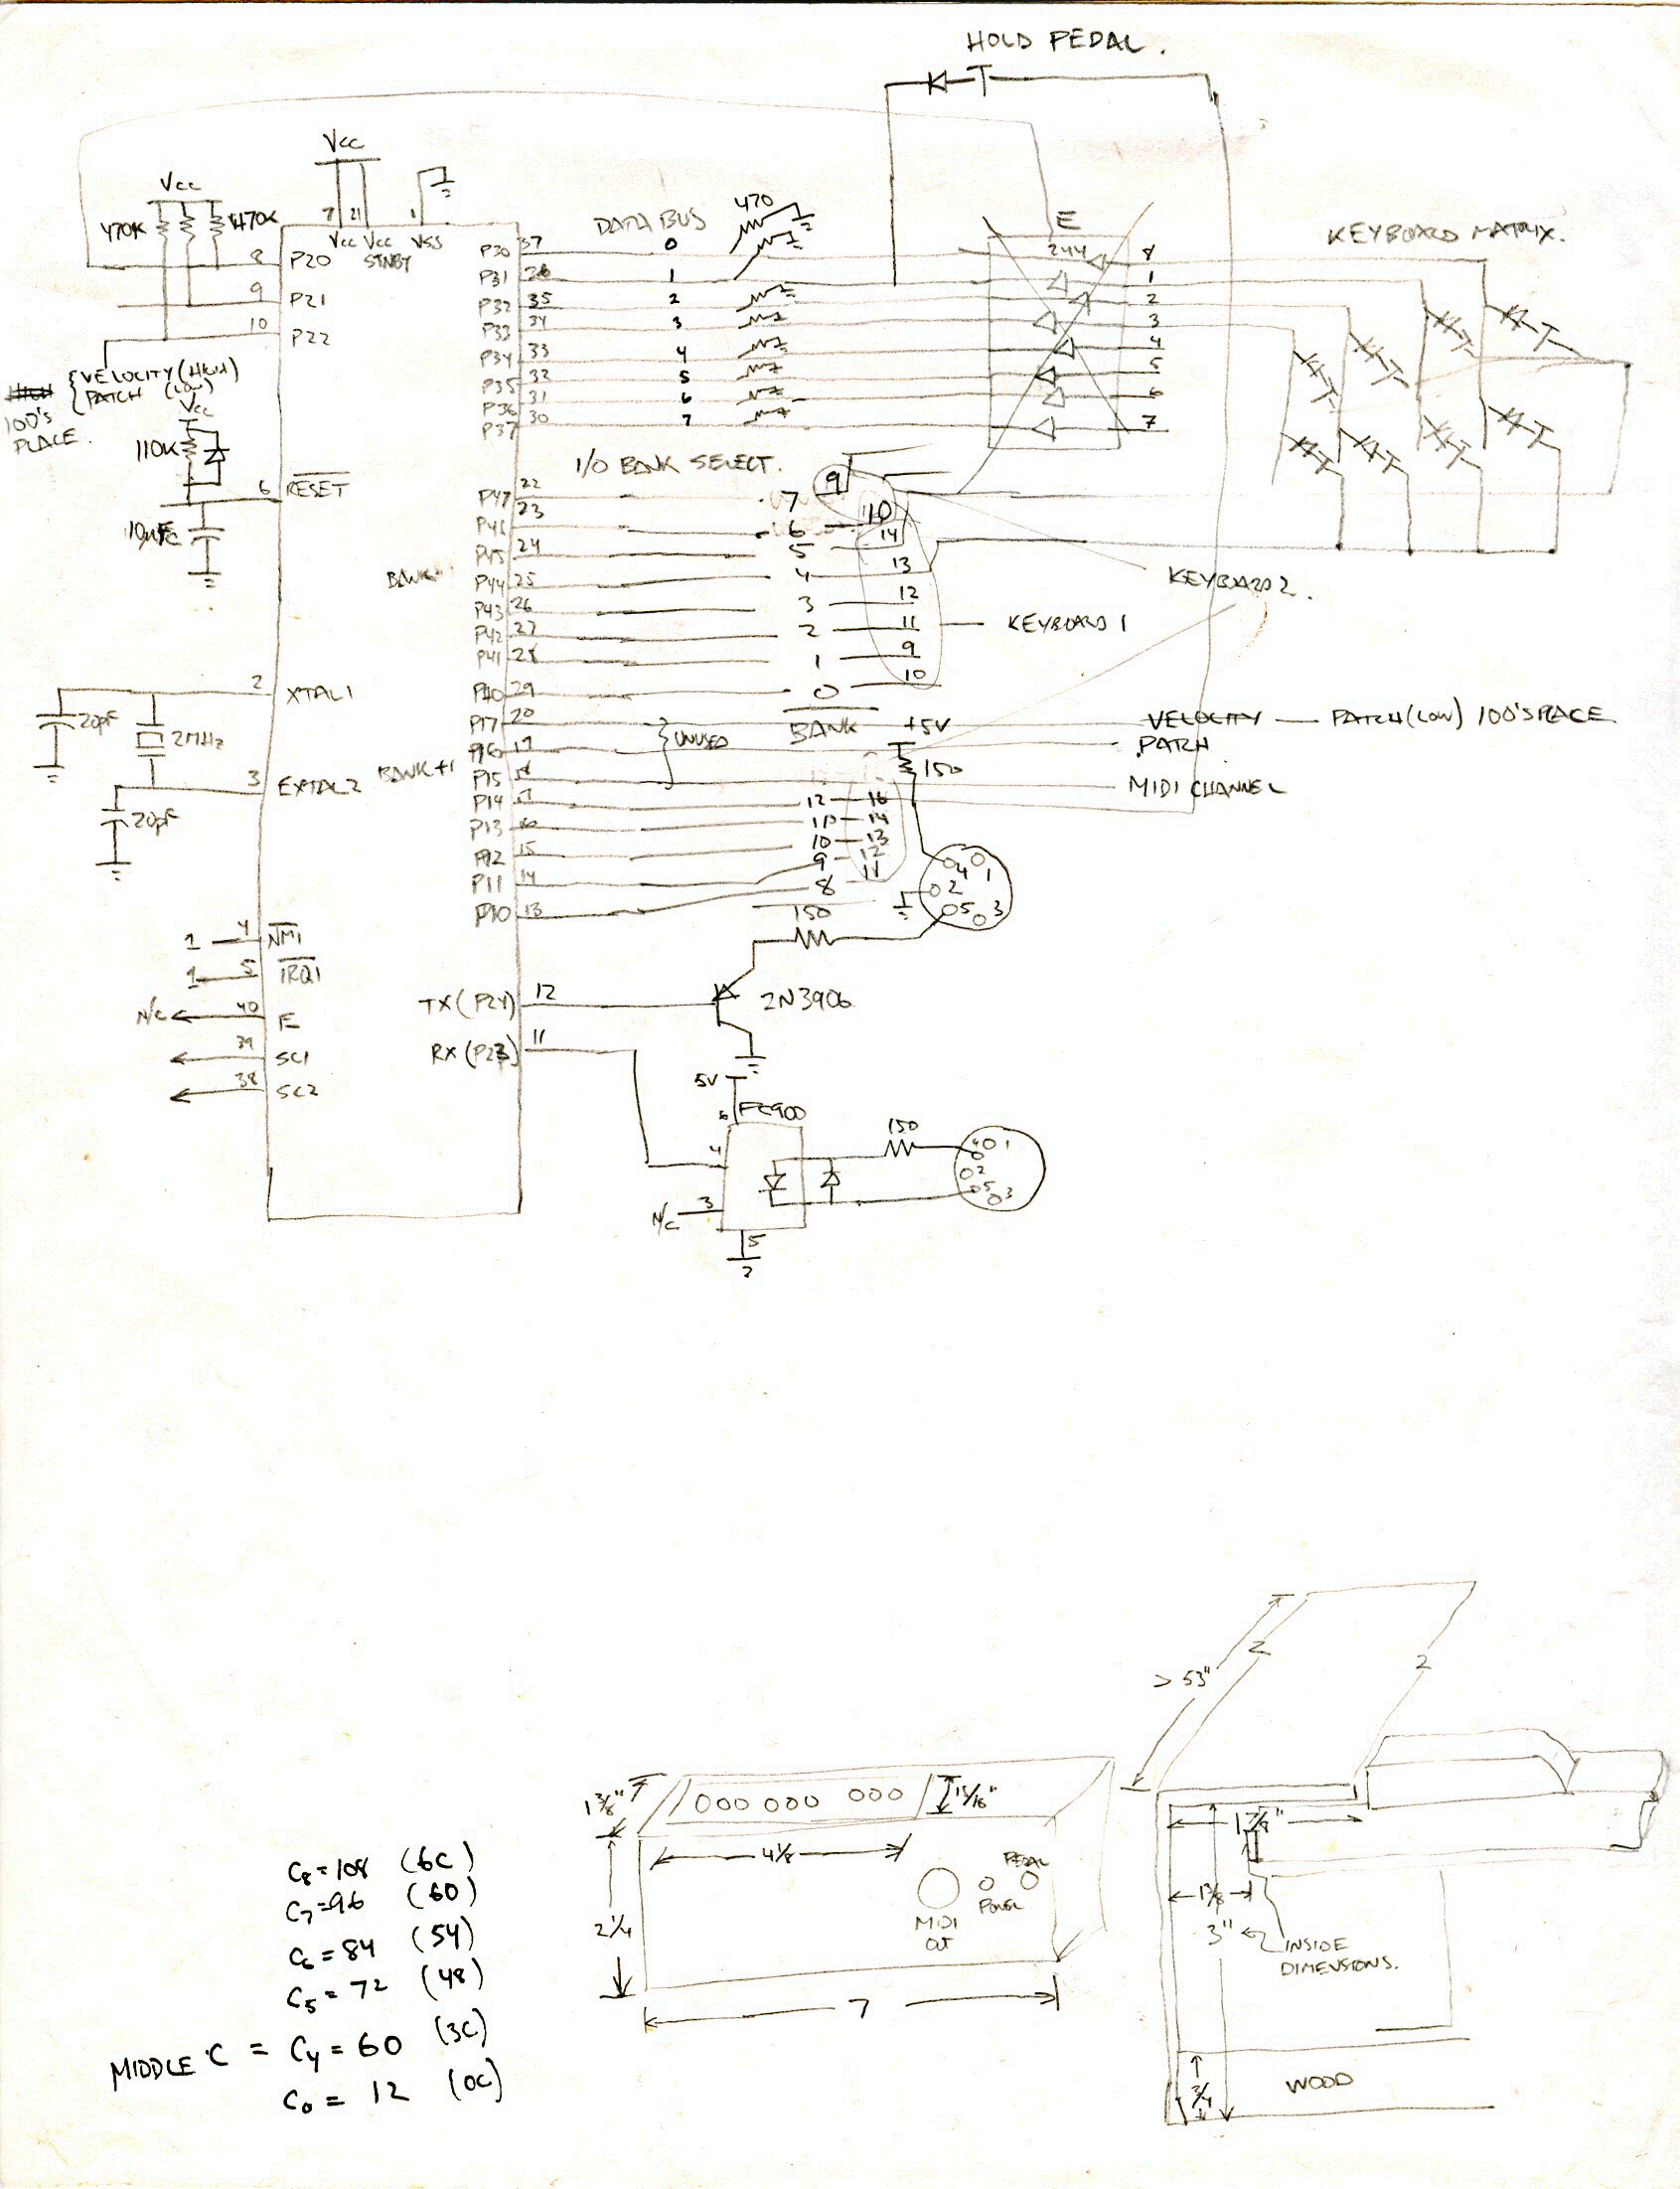 HOLD PEDAL.
Vcc
Vcc
470K
470K
7
21
1
Vcc
Vcc
STNBY
VSS
8
P20
9
P21
10
P22
{VELOCITY (HIGH)
PATCH (LOW)
100'S
PLACE.
Vcc
110K
6
RESET
10µF
2
XTAL1
20pF
2MHz
3
EXTAL2
20pF
1
4
NMI
1
5
IRQ1
N/C
40
E
39
SC1
38
SC2
DATA BUS
470
P30 37 0
P31 36 1
P32 35 2
P33 34 3
P34 33 4
P35 32 5
P36 31 6
P37 30 7
E
244
8
1
2
3
4
5
6
7
KEYBOARD MATRIX.
I/O BANK SELECT.
P47 22 7 9
P46 23 6 10
P45 24 5 14
P44 25 4 13
P43 26 3 12
P42 27 2 11
P41 28 1 9
P40 29 0 10
BANK
BANK+1
KEYBOARD 2.
KEYBOARD 1
BANK
P17 20
P16 19
P15 18
} UNUSED
P14 17 12 16
P13 16 11 14
P12 15 10 13
P11 14 9 12
P10 13 8 11
+5V
150
VELOCITY — PATCH (LOW) 100'S PLACE
PATCH
MIDI CHANNEL
4 1
2
5 3
150
TX (P24) 12
2N3906
RX (P23) 11
5V
6 FC900
4
150
4 1
2
5 3
N/C 3
5
> 53"
2
2
1 3/8"
15/16"
4 1/8
2 1/4
MIDI
OUT
POWER
PEDAL
7
1 7/8"
1 3/8
3"
INSIDE
DIMENSIONS.
3/4
WOOD
C8 = 108 (6C)
C7 = 96 (60)
C6 = 84 (54)
C5 = 72 (48)
MIDDLE C = C4 = 60 (3C)
C0 = 12 (0C)